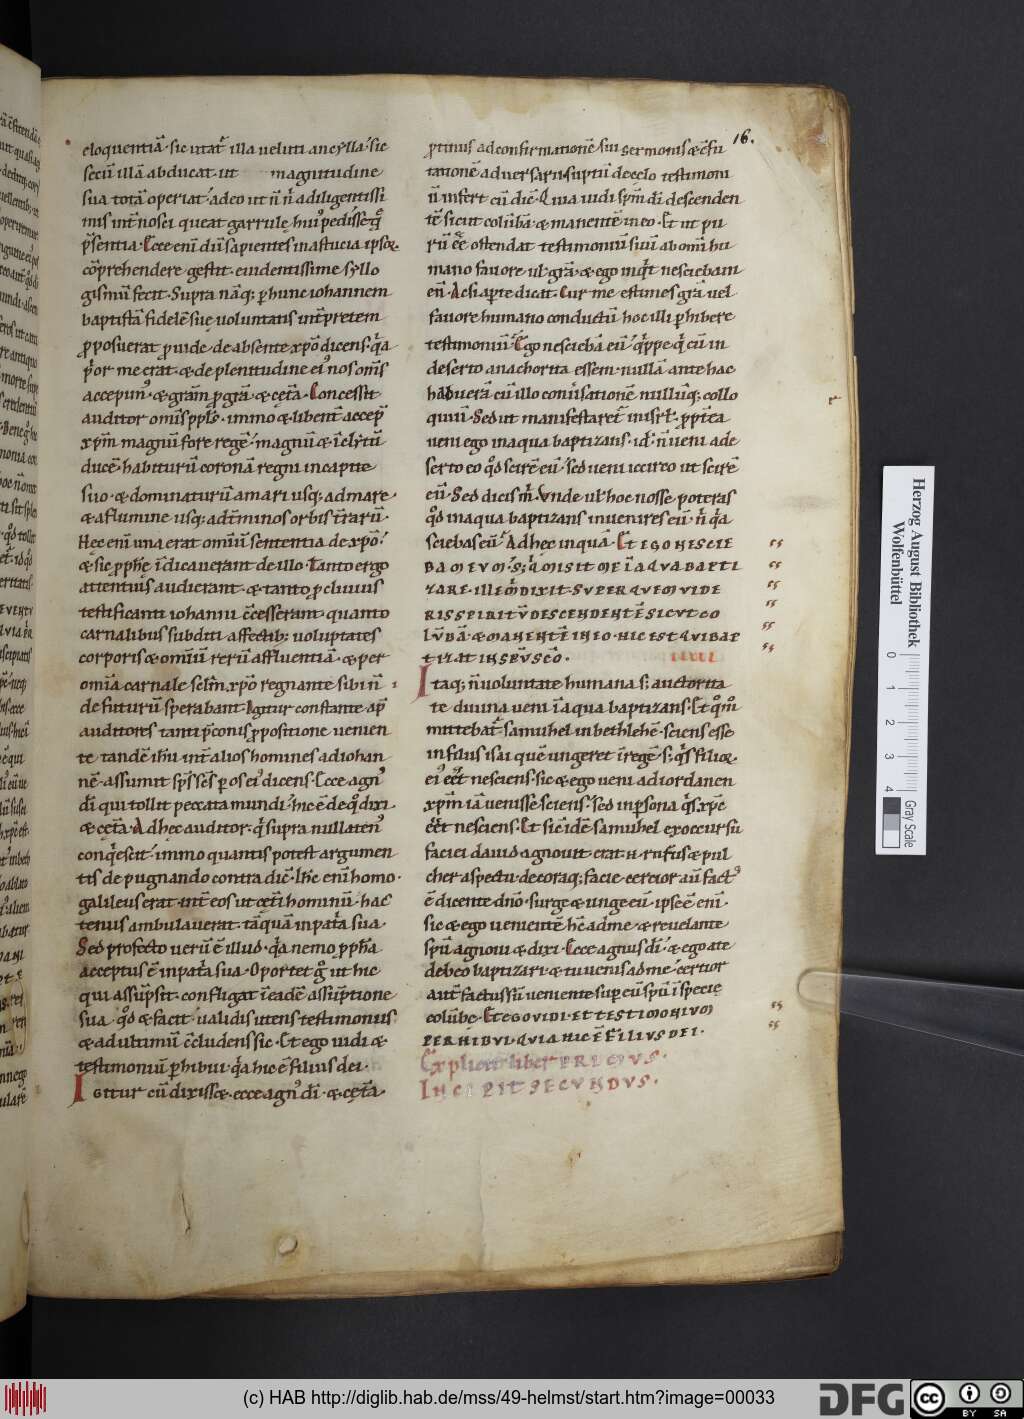 16.
eloquentiā· sic utat͛ illa ueluti ancylla· sic
secū illā abducat· ut magnitudine
sua totā operiat· adeo ut
mis int̄nosci queat garrulę hui᷒
p̄sentia· Ecce enī dū sapientes in astucia ipsoꝝ
cōprehendere gestit· euidentissime syllo
gismū fecit· Supra nāq; ꝑ hunc iohannem
baptistā fidelē suę uoluntatis int̄pretem
ꝓposuerat ꝓuide· de absente xp̄o dicens· q̓a
p̓or me erat· & de plenitudine ei᷒ nos om̄s
accepim᷒· & gr̄am ꝓ gr̄a· & cęt̄a· Concessit
auditor om̄is immo & libent̄ accep̄
xp̄m magnū fore regē· magnū &
ducē· habiturū coronā regni in capite
suo· & dominaturū a mari usq; ad mare·
& a flumine usq; ad t̄minos orbis t̄rarū·
Hęc enī una erat omniū sententia de xp̄o·
& sic ꝓphę īdicauerant de illo· Tanto ergo
attentius audierant· & tanto ꝓcliuius
testificanti iohanni c̄cesserant· quanto
carnalibus subditi affectib; uoluptates
corporis & omniū rerū affluentiā· & per
omīa carnale selm̄ xp̄o regnante sibi n̄
de futurū sperabant· Igitur constante ap̄
auditores tanti p̄conis ꝓpositione uenien
te tandē ih̄u int̄ alios homines ad iohan
nē· assumit sp̄s sc̄s ꝑ os ei᷒ dicens· Ecce agn᷒
dī qui tollit peccata mundi· hic ē de q̊ dixi·
& cęt̄a· Adhęc auditor· q̓ supra nullaten᷒
conq̓escit· immo quantis potest argumen
tis depugnando contradic̄· Hic enī homo·
galileus erat· int̄ eos ut cęt̄i hominū· hac
tenus ambulauerat· tāquā in pat̓a sua·
Sed profecto uerū ē illud· q̓a nemo ꝓph̄a
acceptus ē in pat̓a sua· Oportet g̊ ut hic
qui assūpsit· confligat īeadē assūptione
sua· qd̄ & facit· ualidis utens testimoniis
& ad ultimū c̄cludens sic· Et ego uidi &
testimoniū ꝑhibui· q̓a hic ē filius dei·
Igitur cū dixisset· ecce agn᷒ dī· & cęt̄a·
ꝓtinus ad confirmationē sui sermonis & c̄fu
tationē aduersarii suptū de celo testimoni
ū infert cū dic̄· Quia uidi sp̄m dī descenden
tē sicut colūbā· & manentē in eo· Et ut pu
rū eē ostendat testimoniū suū ab om̄i hu
mano fauore ul̓ gr̄a· & ego inq̓t nesciebam
eū· Ac si aꝑte dicat· Cur me estimes gr̄a uel
fauore humano conductū hoc illi ꝑhibere
testimoniū· Ego nesciebā eū· q̓ppe q̓ cū in
deserto anachorita essem· nullā ante hac
habuerā cū illo conu̓sationē nullūq; collo
quiū· Sed ut manifestaret̄ in isrl̄· ꝓpt̄ea
ueni ego in aqua baptizans· id ē n̄ ueni a de
serto eo qd̄ scirē eū· sed ueni iccirco ut scirē
eū· Sed dicis m̓· Vnde ul̓ hoc nosse poteras
qd̄ in aqua baptizans inuenires eū· n̄ q̓a
sciebas eū· Adhęc inquā· ET EGO NESCIE
BAM EVM· S; Q̓ MISIT ME Ī AQVA BAPTI
ZARE· ILLE M̓ DIXIT· SVPER QVEM VIDE
RIS SPIRITV̄ DESCENDENTĒ SICVT CO
LV̄BĀ· & MANENTĒ IN EO· HIC EST QVI BAP
TIZAT IN SP̄V SC̄O·
IIII
Itaq; n̄ uoluntate humana s; auctorita
te diuina ueni īaqua baptizans· Et q̊m̄
mittebat̄ samuhel in bethleħē· sciens esse
in filiis isai quē ungeret īregē· s; q̓s filioꝝ
ei᷒ eēt nesciens· sic & ego ueni ad iordanen
xp̄m iā uenisse sciens· sed in ꝑsona q̓s xp̄c
eēt nesciens· Et sic idē samuhel ex occursu
faciei dauid agnouit· erat n̄ rufus & pul
cher aspectu· decoraq; facie· certior au̅ fact᷒
ē dicente dn̄o· surge & unge eū· ipse ē enī·
sic & ego uenientē hc̄ ad me· & reuelante
sp̄u agnoui & dixi· Ecce agnus dī· & ego a te
debeo baptizari· & tu uenis ad me· certior
aut̄ factus sū ueniente suꝑ eū sp̄u īspecie
colūbę· ET EGO VIDI· ET TESTIMONIVM
PERHIBVI· QVIA HIC Ē FILIVS DEI·
Explicit liber PRIMVS·
INCIPIT SECVNDVS·
Herzog August Bibliothek
Wolfenbüttel
0 1 2 3 4
Gray Scale
(c) HAB http://diglib.hab.de/mss/49-helmst/start.htm?image=00033
DFG
CC BY SA